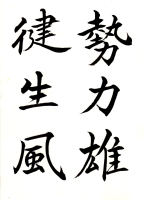 勢力雄
健生風